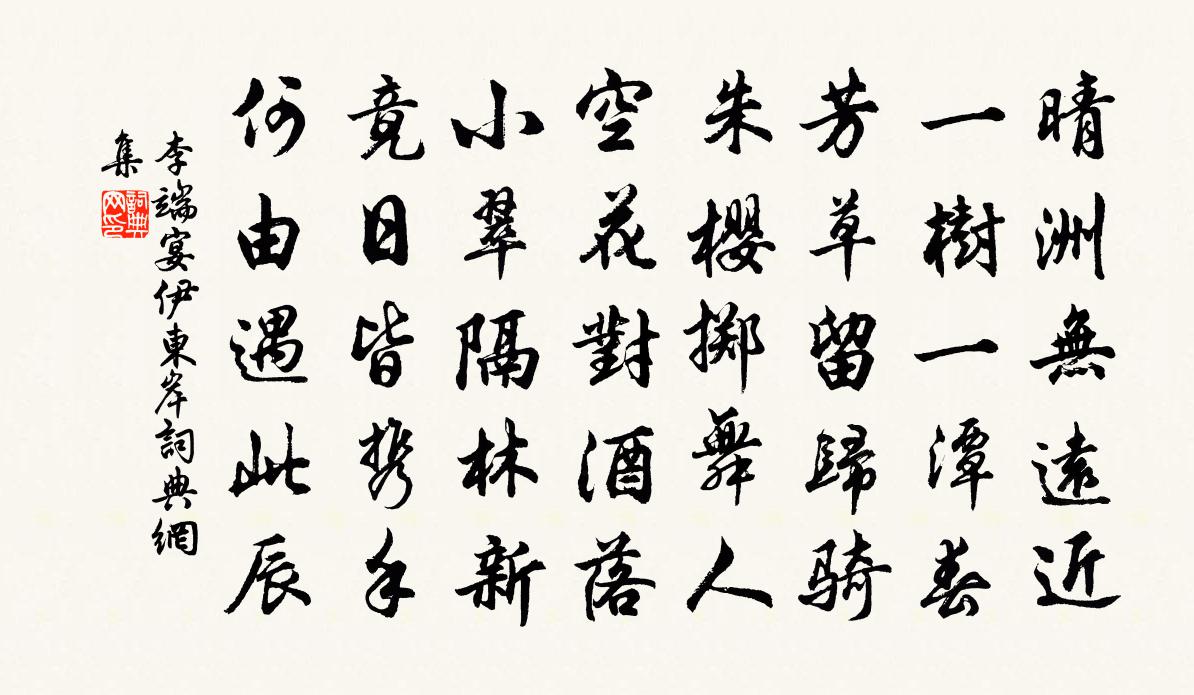 晴洲無遠近
一樹一潭春
芳草留歸騎
朱櫻擲舞人
空花對酒落
小翠隔林新
竟日皆攜手
何由遇此辰
李端宴伊東岸詞典網
集
詞典
网印